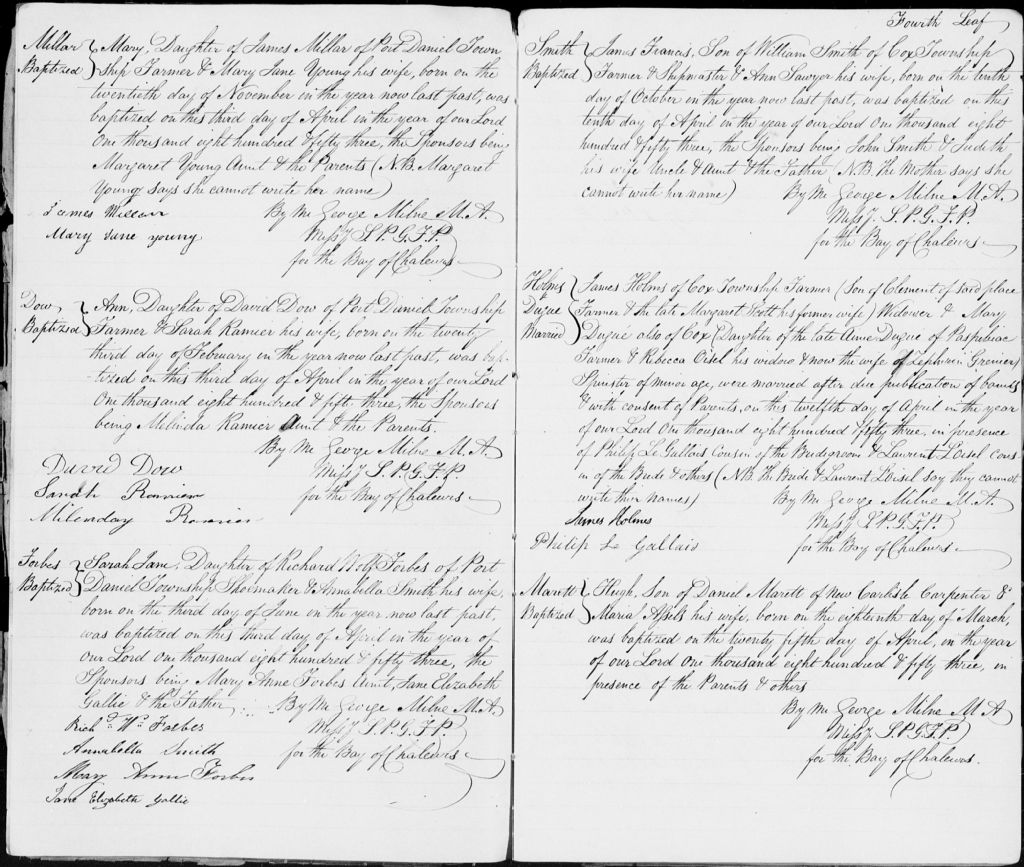 Millar Baptized
Mary, Daughter of James Millar of Port Daniel Town
ship Farmer & Mary Jane Young his wife, born on the
twentieth day of November in the year now last past, was
baptized on this third day of April in the year of our Lord
One thousand eight hundred & fifty three, the Sponsors being
Margaret Young Aunt & the Parents (N.B. Margaret
Young says she cannot write her name)
James Millar
By Me George Milne M.A.
Mary Jane Young
Missy S.P.G.F.P.
for the Bay of Chaleurs
Dow Baptized
Ann, Daughter of David Dow of Port Daniel Township
Farmer & Sarah Ramier his wife, born on the twenty
third day of February in the year now last past, was bap-
-tized on this third day of April in the year of our Lord
One thousand eight hundred & fifty three, the Sponsors
being Melinda Ramier Aunt & the Parents.
By Me George Milne M.A.
David Dow
Missy S.P.G.F.P.
Sarah
for the Bay of Chaleurs
Forbes Baptized
Sarah Jane, Daughter of Richard Wolf Forbes of Port
Daniel Township Shoemaker & Annabella Smith his wife,
born on the third day of June in the year now last past,
was baptized on this third day of April in the year of
our Lord One thousand eight hundred & fifty three, the
Sponsors being Mary Anne Forbes Aunt, Jane Elizabeth
Gallie & the Father
By Me George Milne M.A.
Richd Wm Forbes
Missy S.P.G.F.P.
Annabella Smith
for the Bay of Chaleurs
Mary Ann Forbes
Jane Elizabeth Gallie
Fourth Leaf
Smith Baptized
James Francis, Son of William Smith of Cox Township
Farmer & Shipmaster & Ann Sawyer his wife, born on the tenth
day of October in the year now last past, was baptized on this
tenth day of April in the year of our Lord One thousand eight
hundred & fifty three, the Sponsors being John Smith & Judith
his wife Uncle & Aunt & the Father (N.B. The Mother says she
cannot write her name)
By Me George Milne M.A.
Missy S.P.G.F.P.
for the Bay of Chaleurs
Holmes & Dugue Married
James Holmes of Cox Township Farmer (Son of Clement of said place
Farmer & the late Margaret Scott his former wife) Widower & Mary
Dugue also of Cox (Daughter of the late Amie Dugue of Paspebiac
Farmer & Rebecca Oisel his widow & now the wife of Zephirin Grenier)
Spinster of minor age, were married after due publication of banns
& with consent of Parents, on this twelfth day of April in the year
of our Lord One thousand eight hundred & fifty three, in presence
of Philip Le Gallais Cousin of the Bridegroom & Laurent L'Oisel cous
in of the Bride & others (N.B. The Bride & Laurent L'Oisel say they cannot
write their names)
By Me George Milne M.A.
James Holmes
Missy S.P.G.F.P.
Philip Le Gallais
for the Bay of Chaleurs
Marett Baptized
Hugh, Son of Daniel Marett of New Carlisle Carpenter &
Maria his wife, born on the eighteenth day of March,
was baptized on the twenty fifth day of April, in the year
of our Lord One thousand eight hundred & fifty three, in
presence of the Parents & others
By Me George Milne M.A
Missy S.P.G.F.P.
for the Bay of Chaleurs.